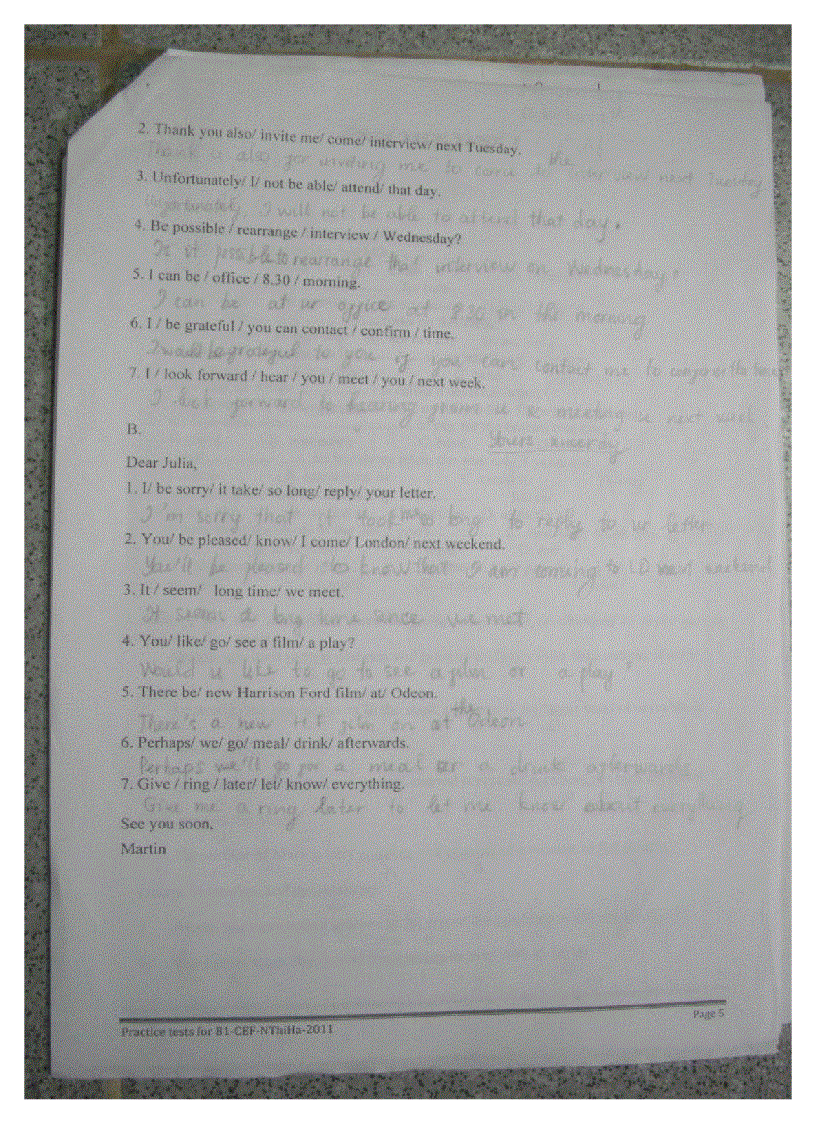 2. Thank you also/ invite me/ come/ interview/ next Tuesday.
also for inviting me to come to the interview next Tuesday
3. Unfortunately/ I/ not be able/ attend/ that day.
Unfortunately, I will not be able to attend that day.
4. Be possible / rearrange / interview / Wednesday?
possible to rearrange that interview on Wednesday?
5. I can be / office / 8.30 / morning.
I can be at ur office at 8.30 in the morning
6. I / be grateful / you can contact / confirm / time.
I would be grateful to you if you can contact me to
7. I / look forward / hear / you / meet / you / next week.
I look forward to hearing from u & meeting u next week
B.
Yours
Dear Julia,
1. I/ be sorry/ it take/ so long/ reply/ your letter.
I'm sorry that it took me so long to reply to ur letter
2. You/ be pleased/ know/ I come/ London/ next weekend.
You'll be pleased to know that I am coming to LD next weekend
3. It / seem/ long time/ we meet.
It seems a long time since we met
4. You/ like/ go/ see a film/ a play?
Would u like to go to see a film or a play?
5. There be/ new Harrison Ford film/ at/ Odeon.
There's a new HF film on at the Odeon
6. Perhaps/ we/ go/ meal/ drink/ afterwards.
Perhaps we'll go for a meal or a drink afterwards
7. Give / ring / later/ let/ know/ everything.
Give me a ring later to let me know about everything
See you soon,
Martin
Practice tests for B1-CEF-NThiHa-2011
Page 5